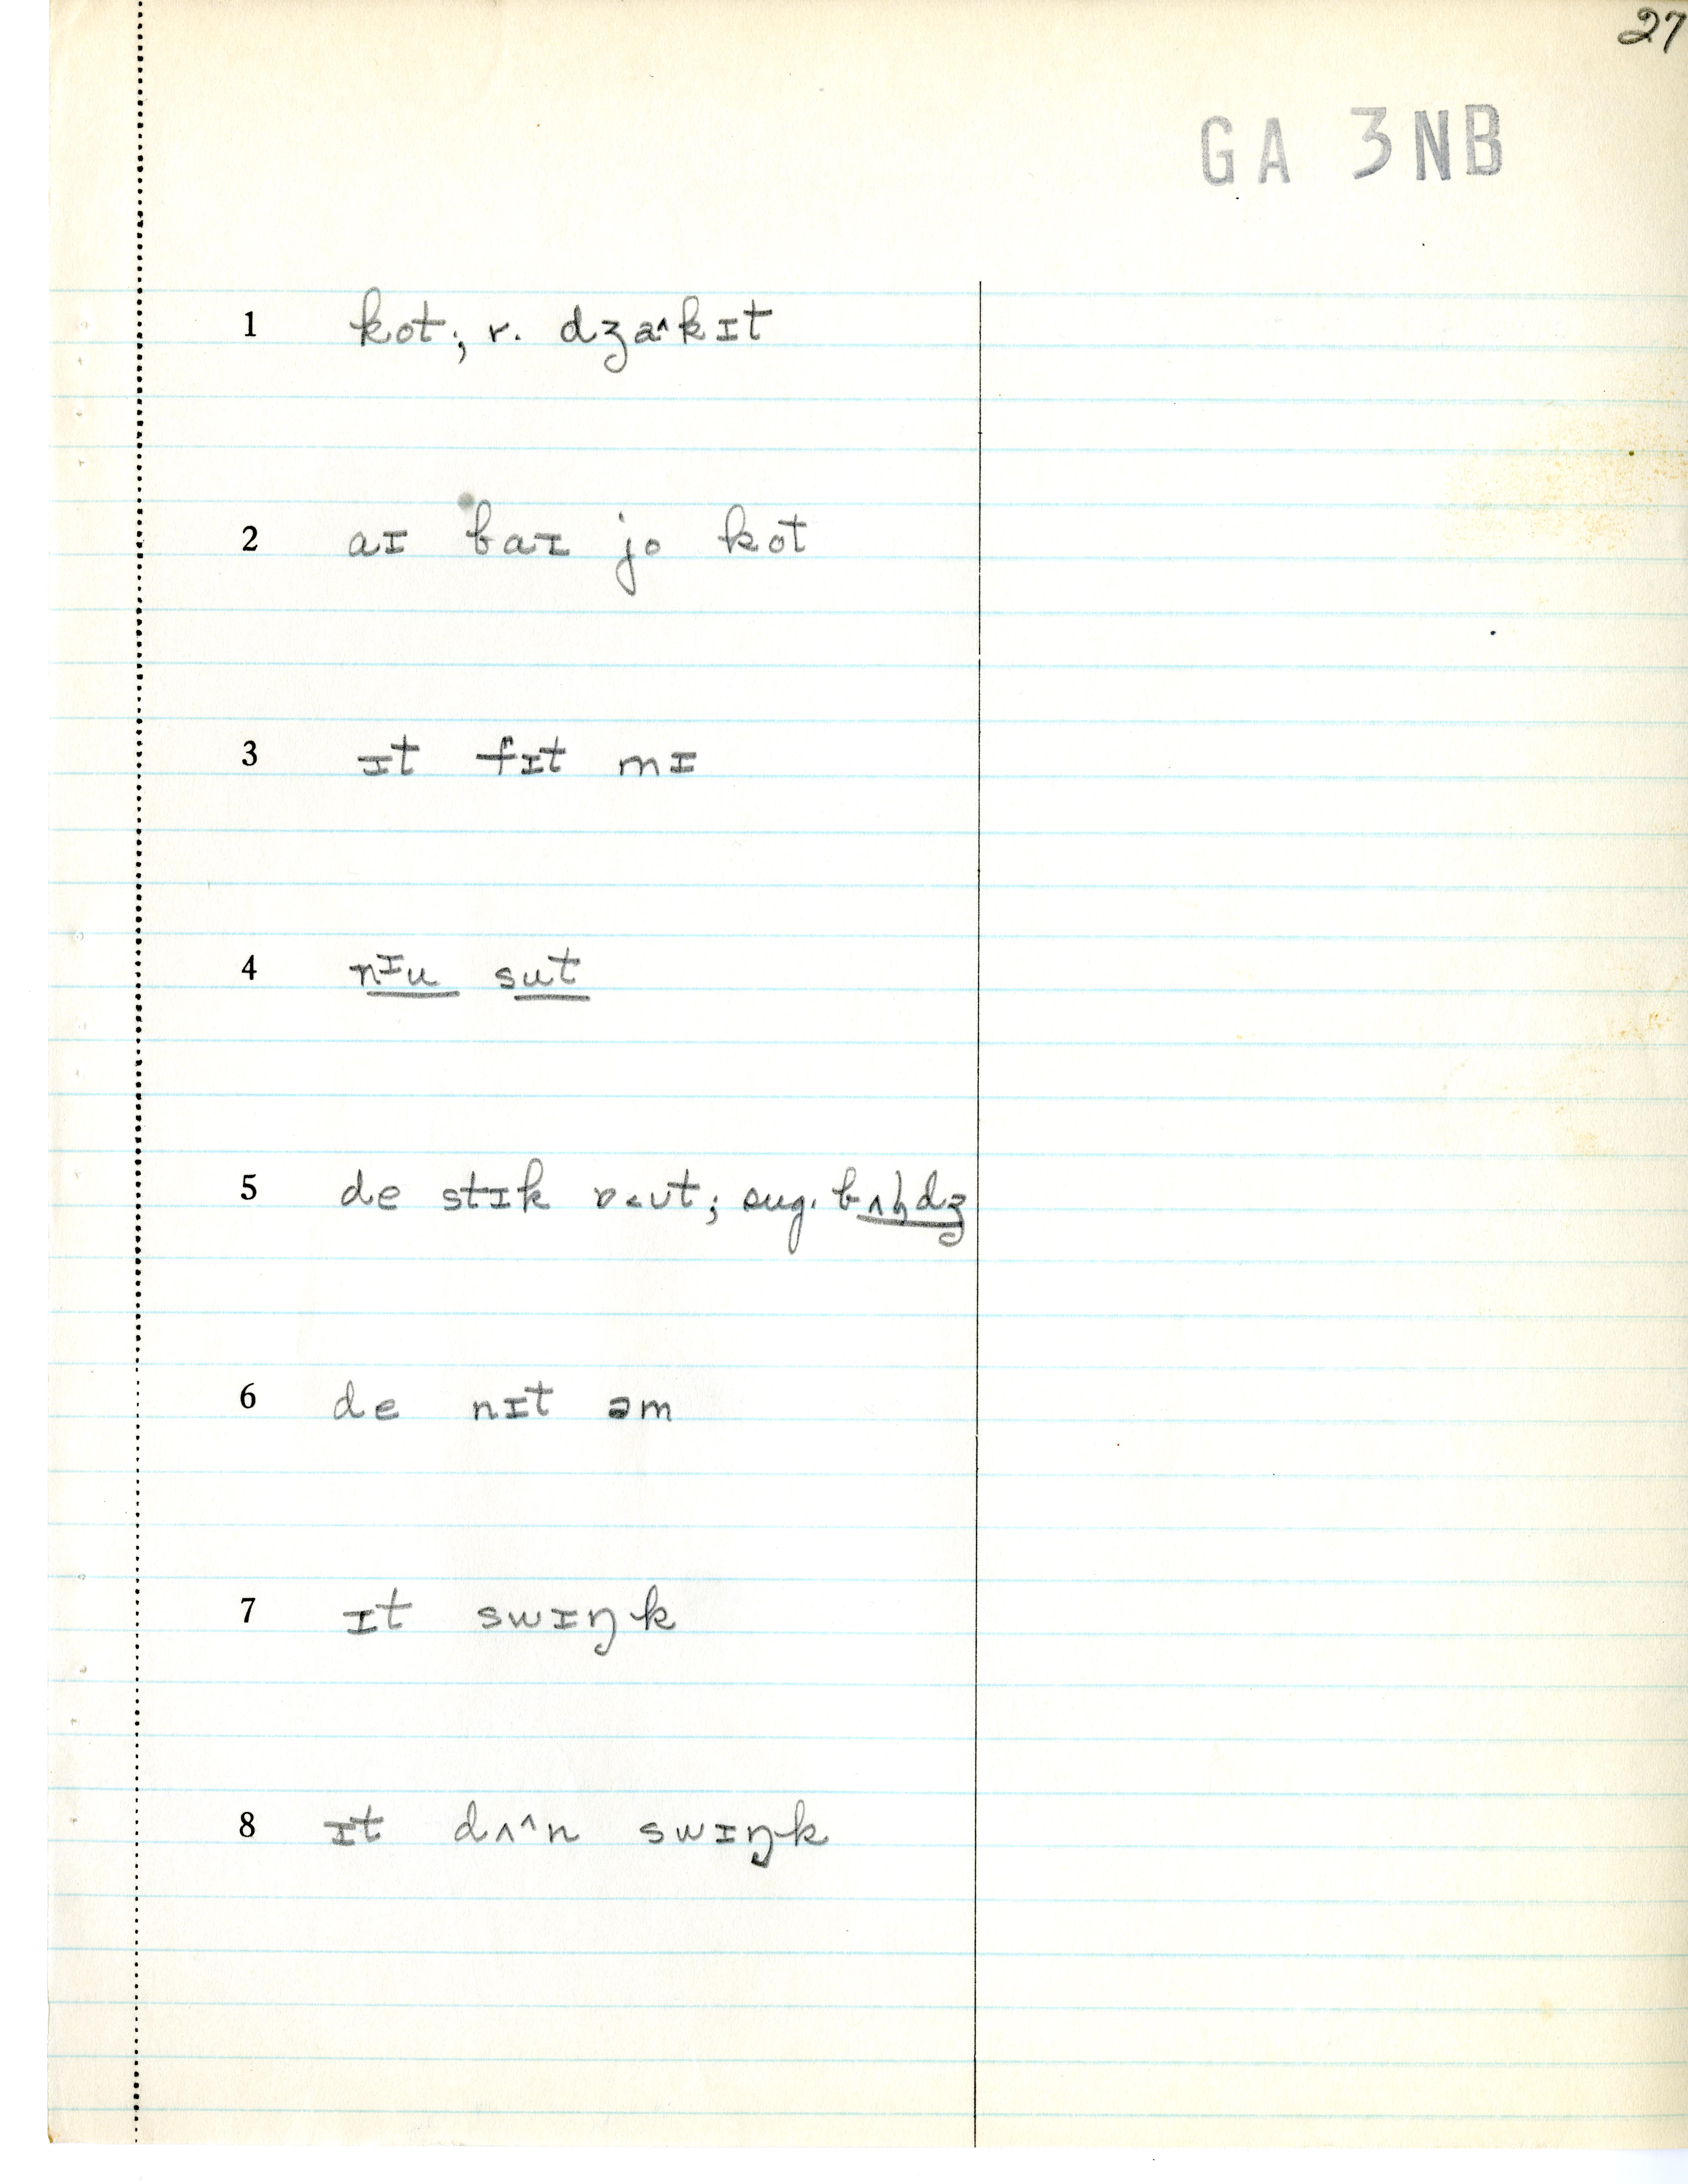 27
GA 3NB
1 kot; r. dʒa^kɪt
2 aɪ baɪ jo kot
3 ɪt fɪt mɪ
4 nɪu sut
5 de stɪk ; sug.
6 de nɪt əm
7 ɪt swɪŋk
8 ɪt dʌ^n swɪŋk